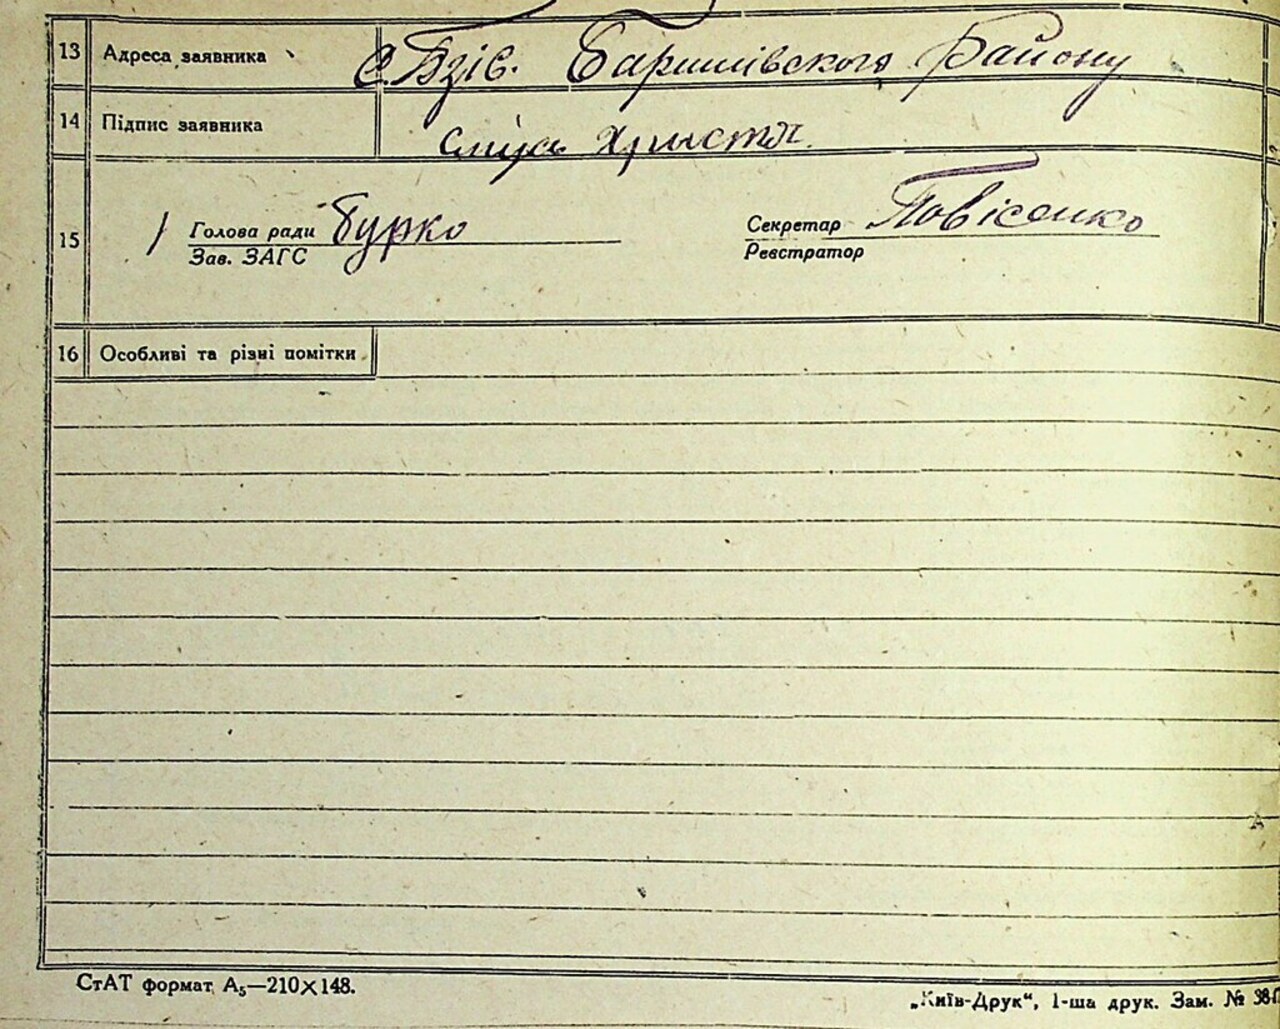 13 Адреса заявника с. Бзів. Баришівського Району
14 Підпис заявника Слиусь Христя.
15 Голова ради Бурко Секретар Повісенко
Зав. ЗАГС Реєстратор
16 Особливі та різні помітки
СтАТ формат А5—210×148.
„Київ-Друк“, 1-ша друк. Зам. № 38